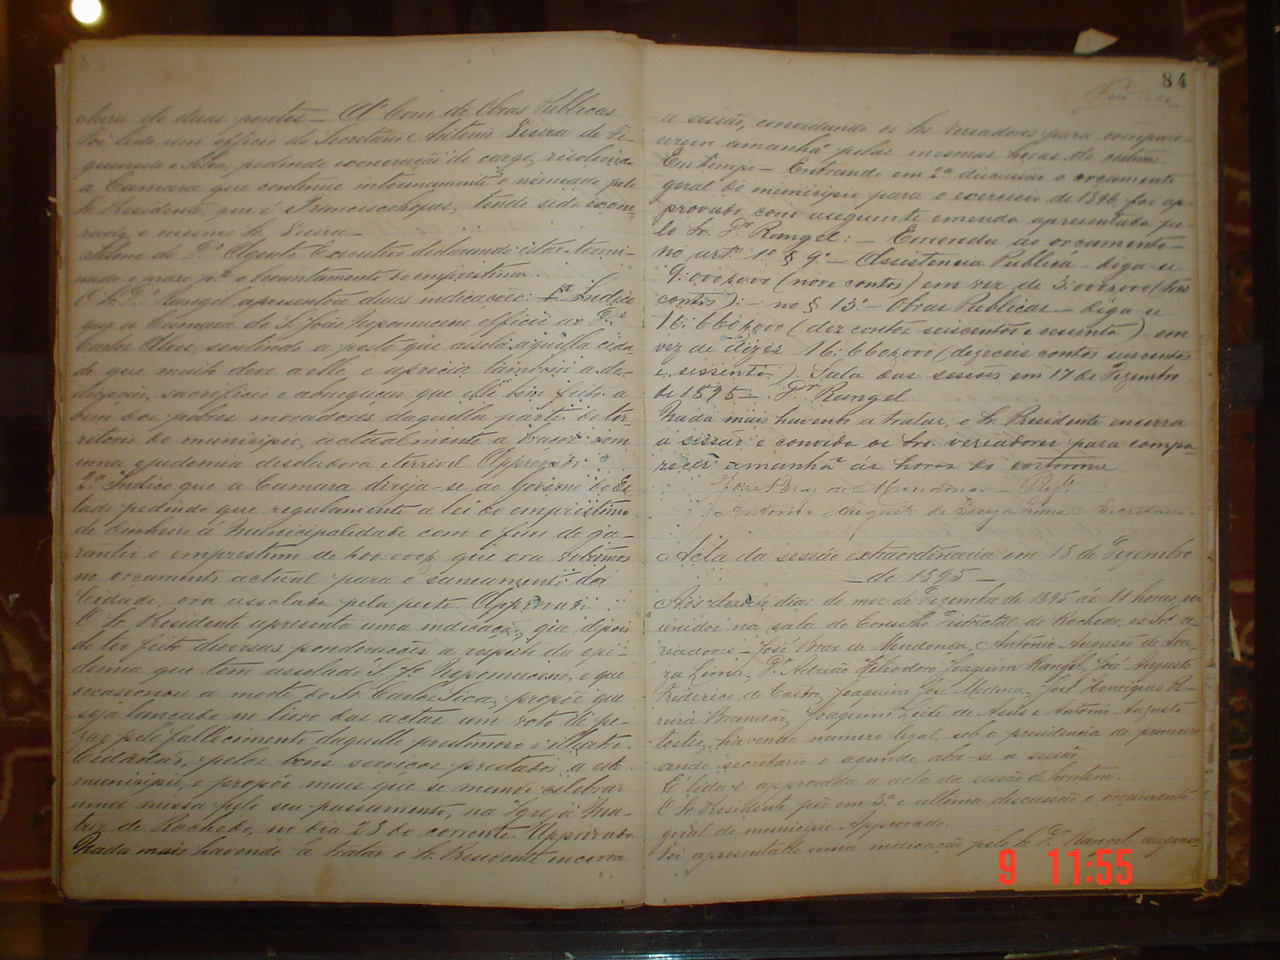 obra de duas pontes — A' Com. de Obras Publicas
Foi lido um officio do Secretario Antonio Vieira de Fi-
gueiredo e Silva pedindo exoneração do cargo, resolveu
a Camara que continue interinamente o nomeado pelo
Sr. Presidente, que é Francisco Lopes, tendo sido exone-
rado o mesmo Sr. Vieira —
Idem do Dr. Agente Executivo declarando estar termi-
nado o prazo pª o levantamento do emprestimo.
O Sr. Dr. Rangel apresentou duas indicações: 1ª Indico
que a Camara de S. João Nepomuceno officie ao Dr.
Carlos Alves, sentindo a peste que assola aquella cida-
de que muito deve a elle e aprecia tambem a de-
dicação, sacrificio e abnegação que elle tem feito a
bem dos pobres moradores daquella parte do ter-
ritorio do municipio, actualmente a braços com
uma epidemia desoladora e terrivel. Approvado
2ª Indico que a Camara dirija-se ao Governo do Es-
tado pedindo que regulamente a lei do emprestimo
de dinheiro á municipalidade com o fim de ga-
rantir o emprestimo de que ora votamos
no orçamento actual para o saneamento da
Cidade, ora assolada pela peste. Approvado.
O Sr. Presidente apresenta uma indicação, que depois
de ter feito diversas ponderações a respeito da epi-
demia que tem assolado S. João Nepomuceno, e que
ocasionou a morte do Sr. Carlos, propõe que
seja lançado no livro das actas um voto de pe-
zar pelo fallecimento daquelle prestimoso e illustre
Cidadão, pelos bons serviços prestados a este
municipio, e propõe mais que se mande celebrar
uma missa pelo seu passamento, na Igreja Ma-
triz de Rochedo, no dia 23 do corrente. Approvado
Nada mais havendo a tratar o Sr. Presidente encerra
84
a sessão, convidando os Srs. vereadores para compare-
cerem amanhã pelas mesmas horas do costume
Em tempo — Entrando em 2ª discussão o orçamento
geral do municipio para o exercicio de 1896, foi ap-
provado com a seguinte emenda apresentada pe-
lo Sr. Dr. Rangel: — Emenda ao orçamento —
no artº 1º § 9º — Assistencia Publica — diga-se
9:000$000 (nove contos) em vez de 3:000$000 (tres
contos): — no § 13º — Obras Publicas — diga-se
10:660$000 (dez contos seiscentos e sessenta) em
vez de dizer 16:660$000 (dezeseis contos seiscentos
e sessenta). Sala das sessões em 17 de Dezembro
de 1895 — Dr. Rangel
Nada mais havendo a tratar, o Sr. Presidente encerra
a sessão e convida os Srs. vereadores para compa-
recer amanhã ás horas do costume
José Braz de Mendonça — Presᵗᵉ
Antonio Augusto de Souza Lima Secretario
Acta da sessão extraordinaria em 18 de Dezembro
— de 1895 —
Aos dezoito dias do mez de Dezembro de 1895 ás 11 horas, re-
unidos na sala do Conselho Districtal de Rochedo, os Srs. ve-
readores — José Braz de Mendonça, Antonio Augusto de Sou-
za Lima, Dr. Adrião Heliodoro Joaquim Rangel, José Augusto
Frederico de Castro, Joaquim José Medina, José Henriques Pe-
reira Brandão, Joaquim Leite de Assis e Antonio Augusto
Tostes, havendo numero legal, sob a presidencia do primeiro
sendo secretario o segundo, abre-se a sessão.
É lida e approvada a acta da sessão de hontem.
O Sr. Presidente põe em 3ª e ultima discussão o orçamento
geral do municipio. Approvado.
Foi apresentada uma indicação pelo Sr. Dr. Rangel
9 11:55